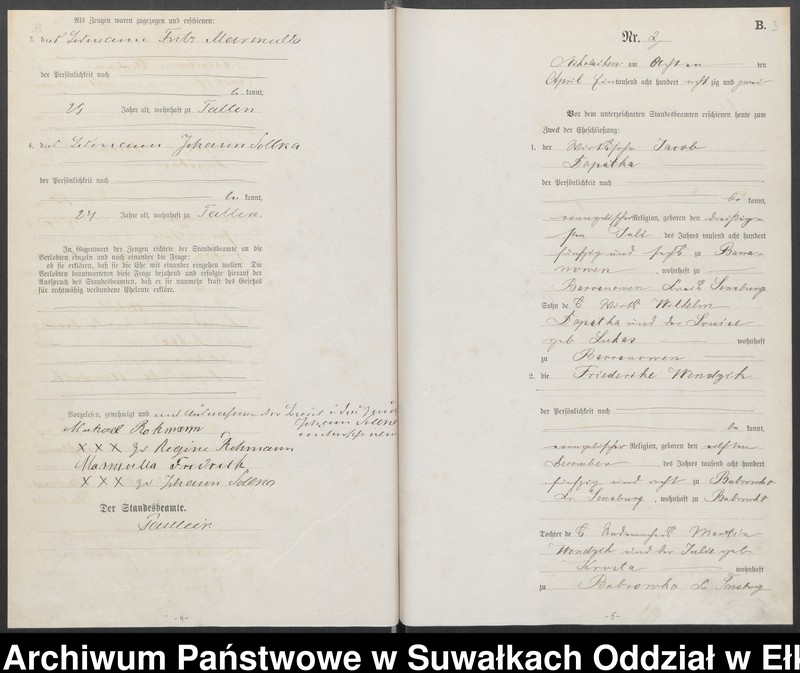 Als Zeugen waren zugezogen und erschienen:
3. Fritz Marmulla
der Persönlichkeit nach
be kannt,
25 Jahre alt, wohnhaft zu Tallen
4. Johann Sollka
der Persönlichkeit nach
be kannt,
24 Jahre alt, wohnhaft zu Tallen
In Gegenwart der Zeugen richtete der Standesbeamte an die
Verlobten einzeln und nach einander die Frage:
ob sie erklären, daß sie die Ehe mit einander eingehen wollen. Die
Verlobten beantworteten diese Frage bejahend und erfolgte hierauf der
Ausspruch des Standesbeamten, daß er sie nunmehr kraft des Gesetzes
für rechtmäßig verbundene Eheleute erkläre.
Vorgelesen, genehmigt und
Rohmann
XXX Regine Rohmann
Marmulla Friedrich
XXX Johann Sollka
Der Standesbeamte.
-4-
B. 3
Nr. 2
Nikolaiken am Achten ten
April Eintausend acht hundert acht zig und zwei
Vor dem unterzeichneten Standesbeamten erschienen heute zum
Zweck der Eheschließung:
1. der Wirthssohn Jacob
Dopatka
der Persönlichkeit nach
be kannt,
evangelischer Religion, geboren den dreißig-
sten Juli des Jahres tausend acht hundert
fünfzig und sechs zu Barra-
nowen, wohnhaft zu
Barranowen Kreis Sensburg
Sohn des Wirth Wilhelm
Dopatka und der Louise
geb Lukas wohnhaft
zu Barranowen
2. die Friederike Wendzik
der Persönlichkeit nach
be kannt,
evangelischer Religion, geboren den elften
December des Jahres tausend acht hundert
fünfzig und acht zu Babrowko
Kr. Sensburg, wohnhaft zu Babrowko
Tochter des Martin
Wendzik und der Julie geb
Krosta wohnhaft
zu Babrowko Kr Sensburg
-5-
Archiwum Państwowe w Suwałkach Oddział w Ełk